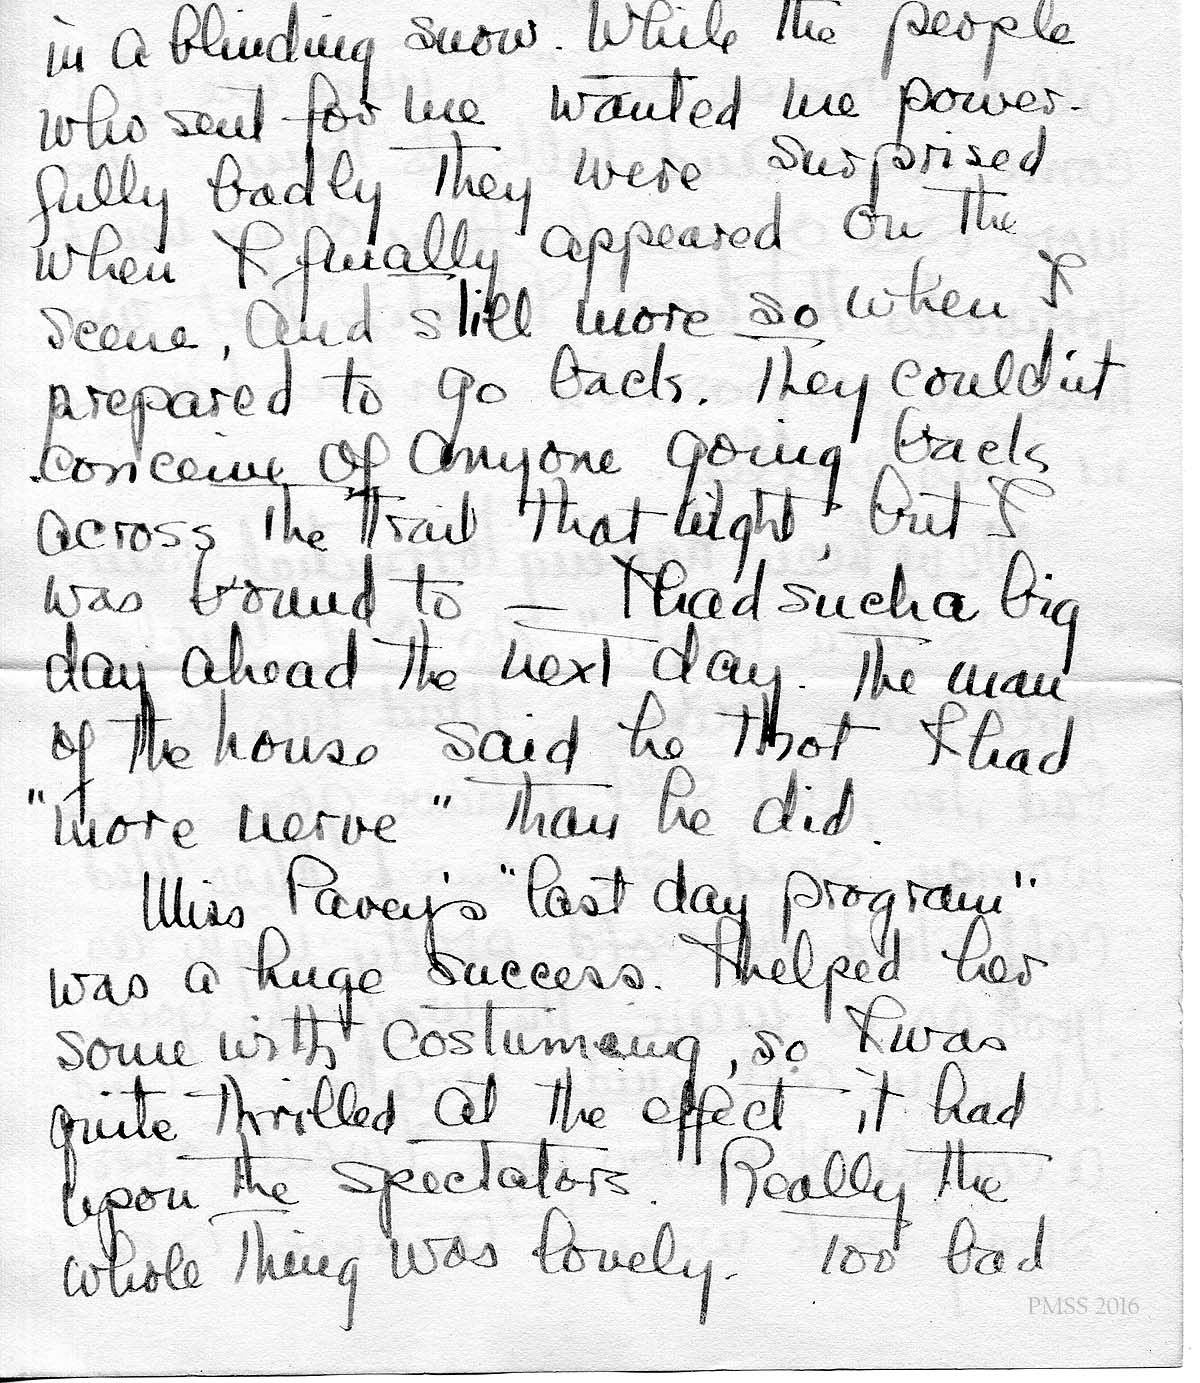 in a blinding snow. While the people
who sent for me wanted me power-
fully badly they were surprised
when I finally appeared on the
scene, and still more so when I
prepared to go back. They couldn't
conceive of anyone going back
across the trail that night, but I
was bound to — I had such a big
day ahead the next day. The man
of the house said he thot I had
"more nerve" than he did.
Miss Pavey's "last day program"
was a huge success. I helped her
some with costumeing, so I was
quite thrilled at the effect it had
upon the spectators. Really the
whole thing was lovely. Too bad
PMSS 2016